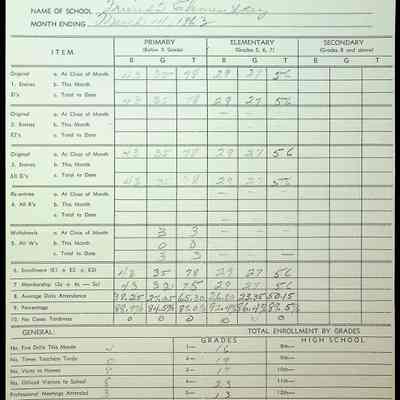 NAME OF SCHOOL Friends Elementary
MONTH ENDING March 14, 1963
ITEM PRIMARY (Below 5 Grade) ELEMENTARY (Grades 5, 6, 7) SECONDARY (Grades 8 and above)
B G T B G T B G T
Original a. At Close of Month 43 35 78 29 27 56
1. Entries b. This Month
E1's c. Total to Date 43 35 78 29 27 56
Original a. At Close of Month
2. Entries b. This Month
E2's c. Total to Date
Original a. At Close of Month 43 35 78 29 27 56
3. Entries b. This Month
All E's c. Total to Date 43 35 78 29 27 56
Re-entries a. At Close of Month
4. All R's b. This Month
c. Total to Date
Withdrawls a. At Close of Month 3 3
5. All W's b. This Month 0 0
c. Total to Date 3 3
6. Enrollment (E1 + E2 + E3) 43 35 78 29 27 56
7. Membership (3a + 4a — 5a) 43 32 75 29 27 56
8. Average Daily Attendance
9. Percentage
10. No. Cases Tardiness 0 0 0 0 0 0
GENERAL: TOTAL ENROLLMENT BY GRADES
GRADES HIGH SCHOOL
No. Fire Drills This Month 1— 16 8th—
No. Times Teachers Tardy 0 2— 19 9th—
No. Visits to Homes 3— 10th—
No. Official Visitors to School 4— 23 11th—
Professional Meetings Attended 5— 13 12th—